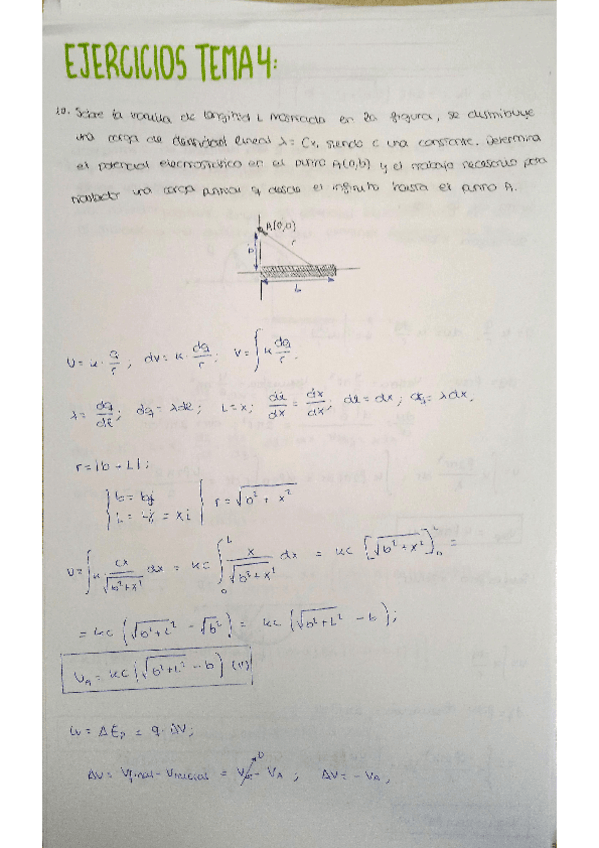 EJERCICIOS TEMA 4:
10. Sobre la varilla de longitud L mostrada en la figura, se distribuye
una carga de densidad lineal λ = Cx, siendo c una constante. Determina
el potencial electrostático en el punto A(0,b) y el trabajo necesario para
trasladar una carga puntual q desde el infinito hasta el punto A.
A(0,0)
b
r
L
V = k · q/r ; dV = k · dq/r ; V = ∫ k dq/r .
λ = dq/dl ; dq = λdl ; L = x ; dl/dx = dx/dx ; dl = dx ; dq = λdx.
r = |b - L| ;
r = √b² + x²
V = ∫ k · cx/√b²+x² dx = kc ∫₀ᴸ x/√b²+x² dx = kc [√b²+x²]₀ᴸ =
= kc (√b²+L² - √b²) = kc (√b²+L² - b) ;
V_A = kc (√b²+L² - b) (V)
W = ΔEp = q · ΔV ;
ΔV = Vfinal - Vinicial = V∞ - V_A ; ΔV = -V_A ,